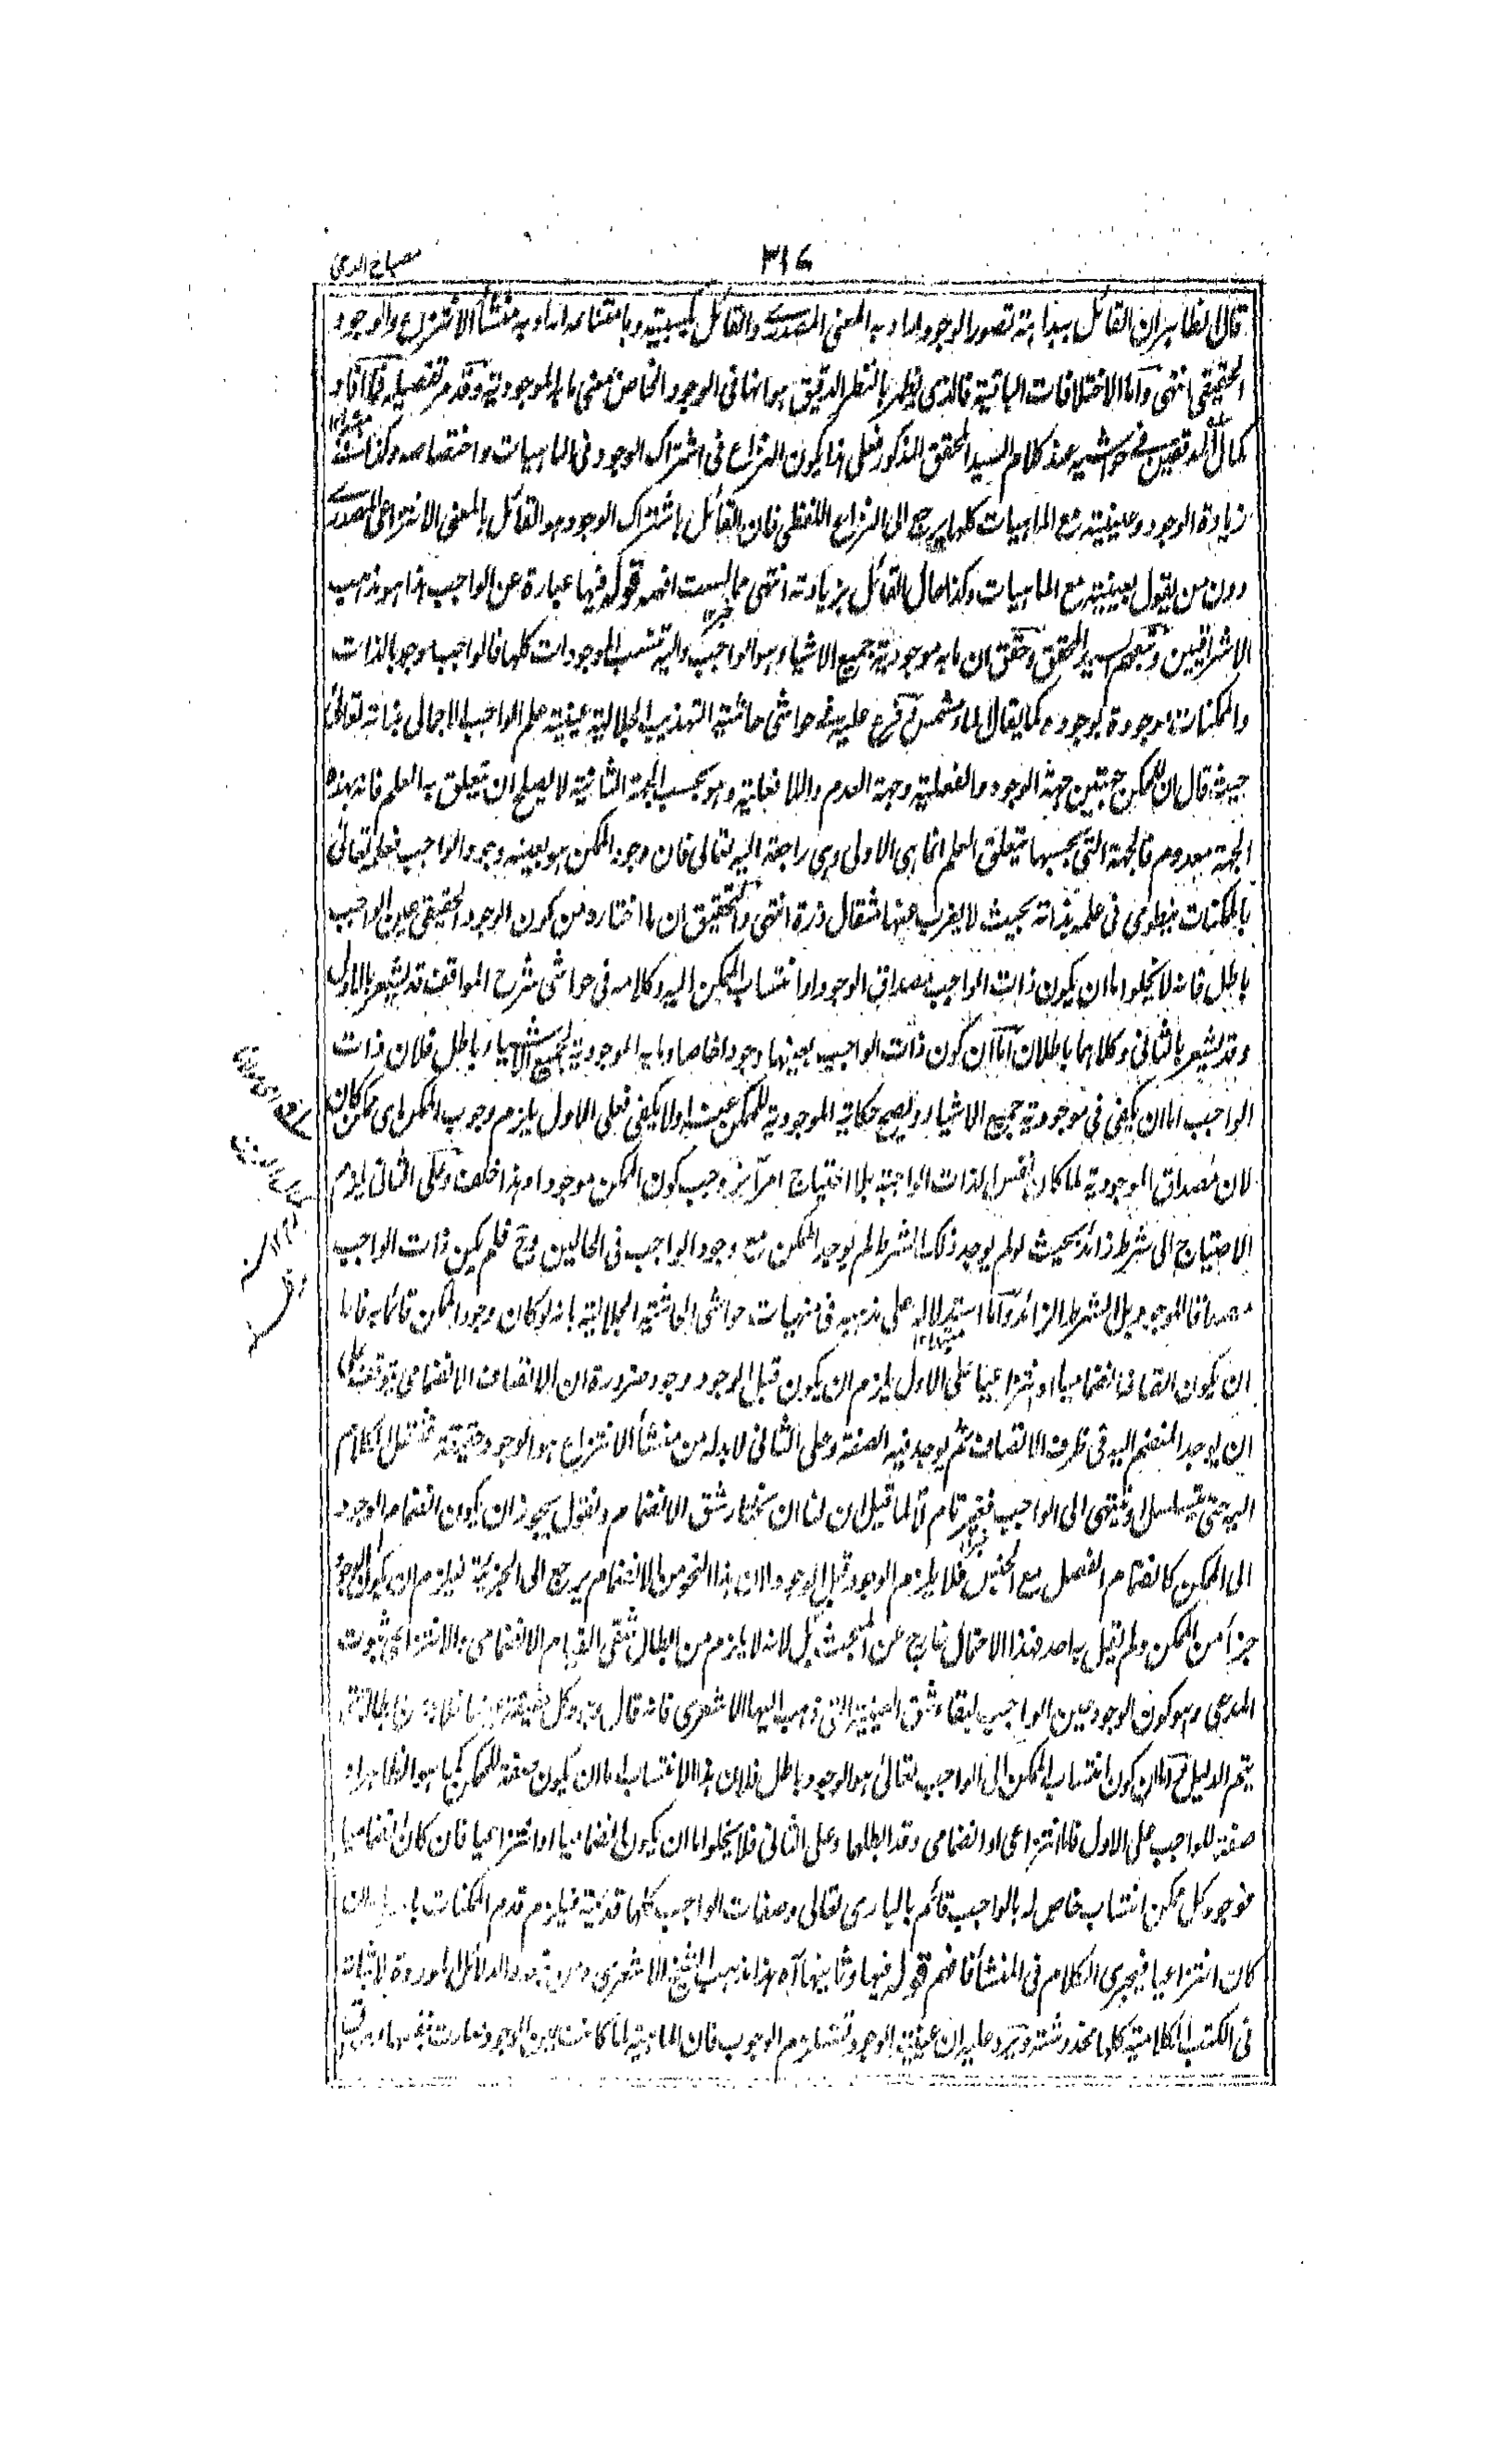 ٣١٤
مصباح الدجى
قال الظاهر ان القائل ببداهة تصور الوجود اراد به المعنى المصدرى والقائل بكسبيته وبامتناعه اراد به منشأ الانتزاع والوجود
الحقيقى انتهى واما الاختلافات الباقية فالذى يظهر بالنظر الدقيق هو انها فى الوجود الخاص بمعنى ما به الموجودية وقد مر تفصيله فما افاد
كمال المدققين فى حواشيه عند كلام السيد المحقق المذكور فعلى هذا يكون النزاع فى اشتراك الوجود فى الماهيات واختصاصه وكذا
زيادة الوجود وعينيته مع الماهيات كلها يرجع الى النزاع اللفظى فان القائل باشتراك الوجود هو القائل بالمعنى الانتزاعى المصدرى
دون من يقول بعينيته مع الماهيات وكذا حال القائل بزيادته انتهى مما ليست افهمه قوله فيها عبارة عن الواجب هذا هو مذهب
الاشراقيين وتبعهم السيد المحقق وحقق ان ما به موجودية جميع الاشياء هو الواجب واليه تنتسب الموجودات كلها فالواجب موجود بالذات
والممكنات موجودة بوجوده كما يقال لماء مشمس ثم فرع عليه فى حواشى حاشية التهذيب الجلالية عينية علم الواجب الاجمالى بذاته تعالى
حيث قال ان للممكن جهتين جهة الوجود والفعلية وجهة العدم واللا فعلية وهو بحسب الجهة الثانية لا يصلح ان يتعلق به العلم فانه بهذه
الجهة معدوم فالجهة التى بحسبها يتعلق العلم انما هى الاولى وهى راجعة اليه تعالى فان وجود الممكن هو بعينه وجود الواجب فعلمه تعالى
بالممكنات ينطوى فى علمه بذاته بحيث لا يعزب عنها مثقال ذرة انتهى والتحقيق ان ما اختاره من كون الوجود الحقيقى عين الواجب
باطل فانه لا يخلو اما ان يكون ذات الواجب مصداق الوجود او انتساب الممكن اليه وكلامه فى حواشى شرح المواقف قد يشعر بالاول
وقد يشعر بالثانى وكلاهما باطلان اما ان كون ذات الواجب بعينها وجودا خاصا وما به الموجودية لجميع الاشياء باطل فلان ذات
الواجب اما ان يكفى فى موجودية جميع الاشياء ويصح حكاية الموجودية للممكن عنه او لا يكفى فعلى الاول يلزم وجوب الممكن اى ممكن كان
لان مصداق الموجودية لما كان نفس الذات الواجبة بلا احتياج امر آخر وجب كون الممكن موجودا وهذا خلف وعلى الثانى يلزم
الاحتياج الى شرط زائد بحيث لو لم يوجد ذلك الشرط لم يوجد الممكن مع وجود الواجب فى الحالين وح فلم يكن ذات الواجب
مصداقا للوجود بل الشرط الزائد واما استدلاله على مذهبه فى منهيات حواشى الحاشية الجلالية بانه لو كان وجود الممكن قائما به فاما
ان يكون اتصافا انضماميا او انتزاعيا على الاول يلزم ان يكون قبل الوجود وجود ضرورة ان الاتصاف الانضمامى يتوقف على
ان يوجد المنضم اليه فى ظرف الاتصاف ثم يوجد فيه الصفة وعلى الثانى لا بد له من منشأ الانتزاع هو الوجود حقيقة فننقل الكلام
اليه حتى يتسلسل او ينتهى الى الواجب فغير تام لا لما قيل ان لنا ان نختار شق الانضمام ونقول يجوز ان يكون انضمام الوجود
الى الممكن كانضمام الفصل مع الجنس فلا يلزم الوجود قبل الوجود لان هذا النحو من الانضمام يرجع الى الجزئية فيلزم ان يكون الوجود
جزأ من الممكن ولم يقل به احد فهذا الاحتمال خارج عن المبحث بل لانه لا يلزم من ابطال شقى القيام الانضمامى والانتزاعى ثبوت
المدعى وهو كون الوجود عين الواجب لبقاء شق العينية التى ذهب اليها الاشعرى فانه قال وجود كل حقيقة عينها فلا بد من ابطاله حتى
يتم الدليل ثم اما ان كون انتساب الممكن الى الواجب تعالى هو الوجود باطل فلان هذا الانتساب اما ان يكون صفة للممكن كما هو الظاهر او
صفة للواجب على الاول فاما انتزاعى او انضمامى وقد ابطلهما وعلى الثانى فلا يخلو اما ان يكون انضماميا او انتزاعيا فان كان انضماميا
فوجود كل ممكن انتساب خاص له بالواجب قائم بالبارى تعالى وصفات الواجب كلها قديمة فيلزم قدم الممكنات
كان انتزاعيا فيجرى الكلام فى المنشأ فافهم قوله فيها وثانيها آه هذا مذهب الشيخ الاشعرى والدلائل الموردة لاثباته
فى الكتب الكلامية كلها مخدوشة ويرد عليه ان عينية الوجود تستلزم الوجوب فان الماهية لما كانت عين الوجود